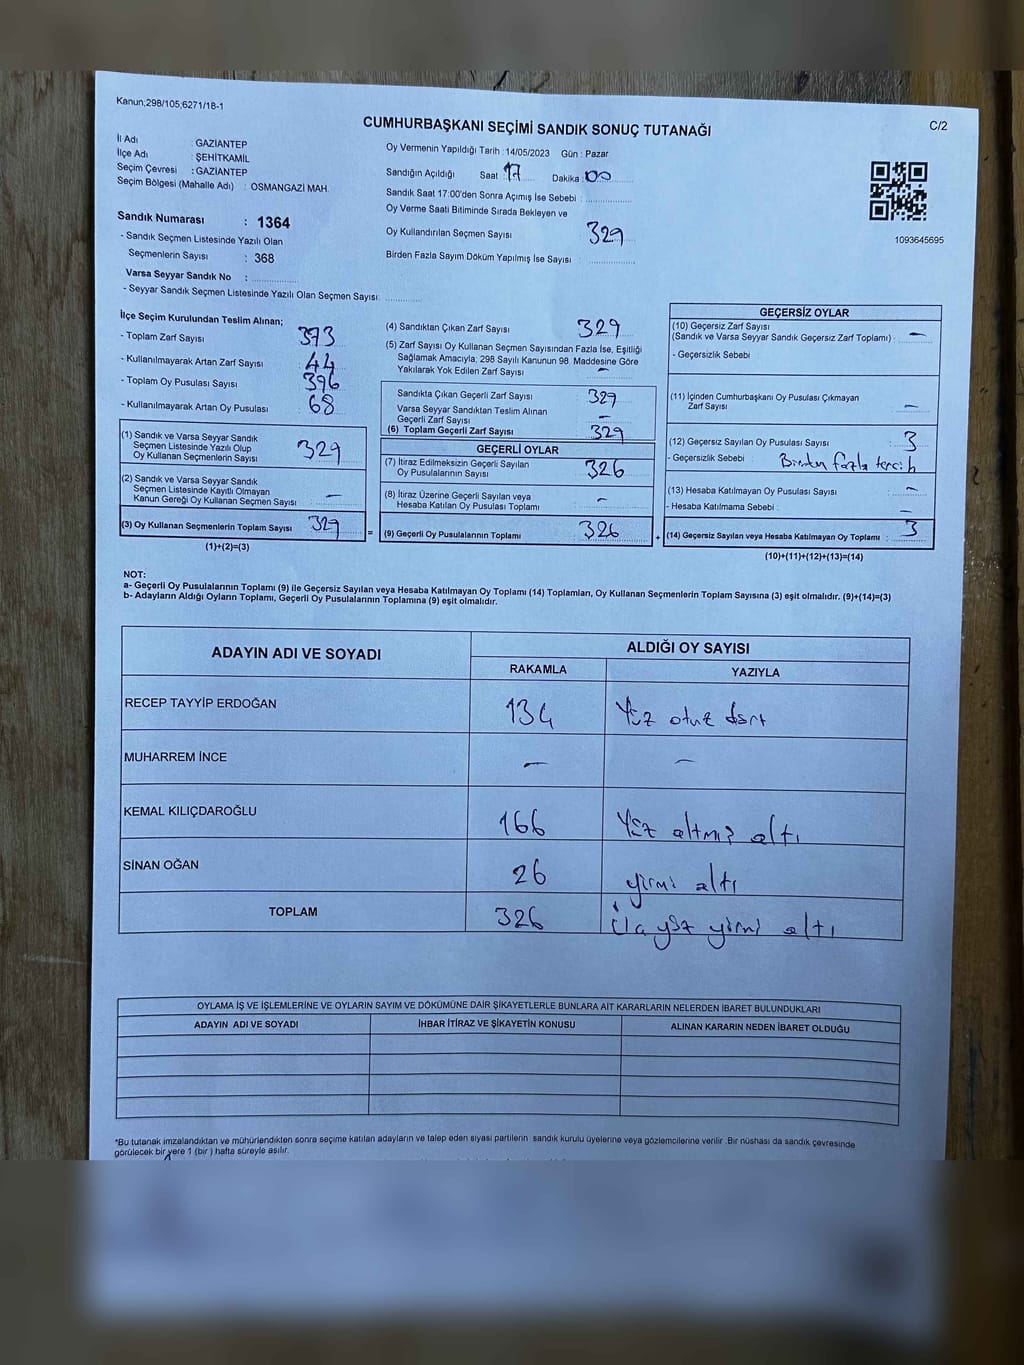 Kanun;298/105;6271/18-1
CUMHURBAŞKANI SEÇİMİ SANDIK SONUÇ TUTANAĞI
C/2
İl Adı : GAZİANTEP
İlçe Adı : ŞEHİTKAMİL
Seçim Çevresi : GAZİANTEP
Seçim Bölgesi (Mahalle Adı) : OSMANGAZİ MAH.
Sandık Numarası : 1364
- Sandık Seçmen Listesinde Yazılı Olan
Seçmenlerin Sayısı : 368
Varsa Seyyar Sandık No :
- Seyyar Sandık Seçmen Listesinde Yazılı Olan Seçmen Sayısı:
Oy Vermenin Yapıldığı Tarih : 14/05/2023 Gün : Pazar
Sandığın Açıldığı Saat : 17 Dakika : 00
Sandık Saat 17:00'den Sonra Açımış İse Sebebi :
Oy Verme Saati Bitiminde Sırada Bekleyen ve
Oy Kullandırılan Seçmen Sayısı 329
Birden Fazla Sayım Döküm Yapılmış İse Sayısı :
1093645695
İlçe Seçim Kurulundan Teslim Alınan;
- Toplam Zarf Sayısı : 373
- Kullanılmayarak Artan Zarf Sayısı : 44
- Toplam Oy Pusulası Sayısı : 396
- Kullanılmayarak Artan Oy Pusulası : 68
(1) Sandık ve Varsa Seyyar Sandık
Seçmen Listesinde Yazılı Olup
Oy Kullanan Seçmenlerin Sayısı : 329
(2) Sandık ve Varsa Seyyar Sandık
Seçmen Listesinde Kayıtlı Olmayan
Kanun Gereği Oy Kullanan Seçmen Sayısı : —
(3) Oy Kullanan Seçmenlerin Toplam Sayısı : 329
(1)+(2)=(3)
(4) Sandıktan Çıkan Zarf Sayısı : 329
(5) Zarf Sayısı Oy Kullanan Seçmen Sayısından Fazla İse, Eşitliği
Sağlamak Amacıyla; 298 Sayılı Kanunun 98. Maddesine Göre
Yakılarak Yok Edilen Zarf Sayısı : —
Sandıkta Çıkan Geçerli Zarf Sayısı : 329
Varsa Seyyar Sandıktan Teslim Alınan
Geçerli Zarf Sayısı : —
(6) Toplam Geçerli Zarf Sayısı : 329
GEÇERLİ OYLAR
(7) İtiraz Edilmeksizin Geçerli Sayılan
Oy Pusulalarının Sayısı : 326
(8) İtiraz Üzerine Geçerli Sayılan veya
Hesaba Katılan Oy Pusulası Toplamı : —
= (9) Geçerli Oy Pusulalarının Toplamı : 326
GEÇERSİZ OYLAR
(10) Geçersiz Zarf Sayısı
(Sandık ve Varsa Seyyar Sandık Geçersiz Zarf Toplamı) : —
- Geçersizlik Sebebi :
(11) İçinden Cumhurbaşkanı Oy Pusulası Çıkmayan
Zarf Sayısı : —
(12) Geçersiz Sayılan Oy Pusulası Sayısı : 3
- Geçersizlik Sebebi : Birden fazla tercih
(13) Hesaba Katılmayan Oy Pusulası Sayısı : —
- Hesaba Katılmama Sebebi : —
+ (14) Geçersiz Sayılan veya Hesaba Katılmayan Oy Toplamı : 3
(10)+(11)+(12)+(13)=(14)
NOT:
a- Geçerli Oy Pusulalarının Toplamı (9) ile Geçersiz Sayılan veya Hesaba Katılmayan Oy Toplamı (14) Toplamları, Oy Kullanan Seçmenlerin Toplam Sayısına (3) eşit olmalıdır. (9)+(14)=(3)
b- Adayların Aldığı Oyların Toplamı, Geçerli Oy Pusulalarının Toplamına (9) eşit olmalıdır.
ADAYIN ADI VE SOYADI
ALDIĞI OY SAYISI
RAKAMLA YAZIYLA
RECEP TAYYİP ERDOĞAN 134 Yüz otuz dört
MUHARREM İNCE — —
KEMAL KILIÇDAROĞLU 166 Yüz altmış altı
SİNAN OĞAN 26 yirmi altı
TOPLAM 326 Üç yüz yirmi altı
OYLAMA İŞ VE İŞLEMLERİNE VE OYLARIN SAYIM VE DÖKÜMÜNE DAİR ŞİKAYETLERLE BUNLARA AİT KARARLARIN NELERDEN İBARET BULUNDUKLARI
ADAYIN ADI VE SOYADI İHBAR İTİRAZ VE ŞİKAYETİN KONUSU ALINAN KARARIN NEDEN İBARET OLDUĞU
*Bu tutanak imzalandıktan ve mühürlendikten sonra seçime katılan adayların ve talep eden siyasi partilerin sandık kurulu üyelerine veya gözlemcilerine verilir .Bir nüshası da sandık çevresinde
görülecek bir yere 1 (bir ) hafta süreyle asılır.